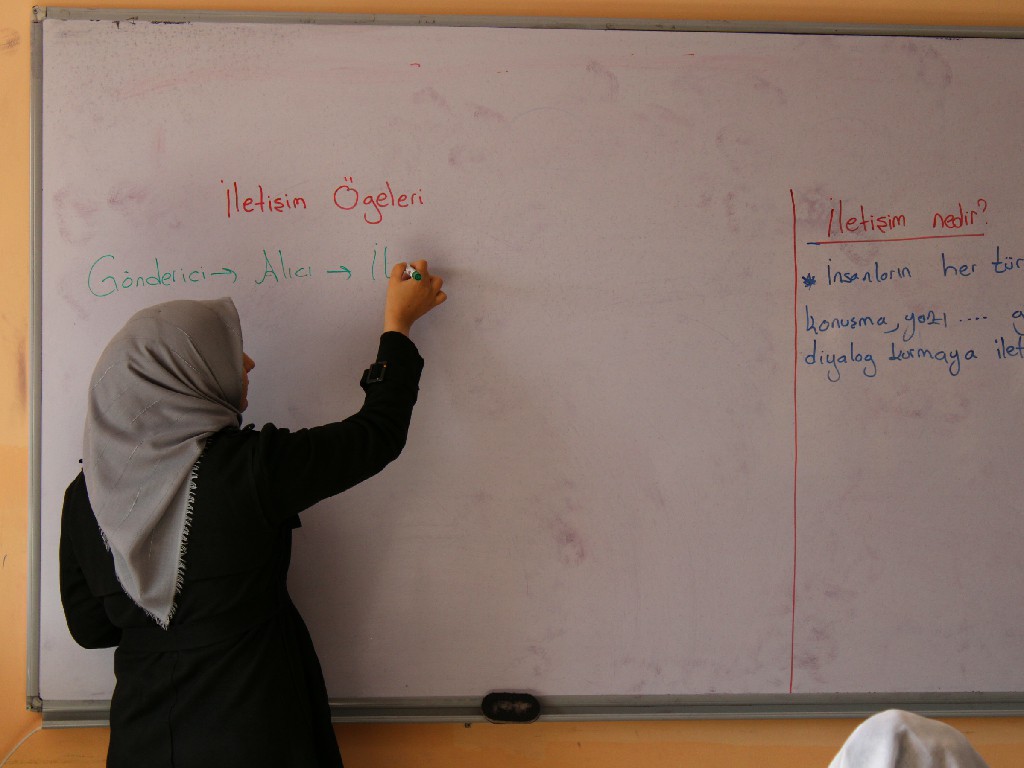 İletişim Ögeleri
Gönderici → Alıcı → İl
İletişim nedir?
* İnsanların her tür
konuşma, yazı ....
diyalog kurmaya ilet